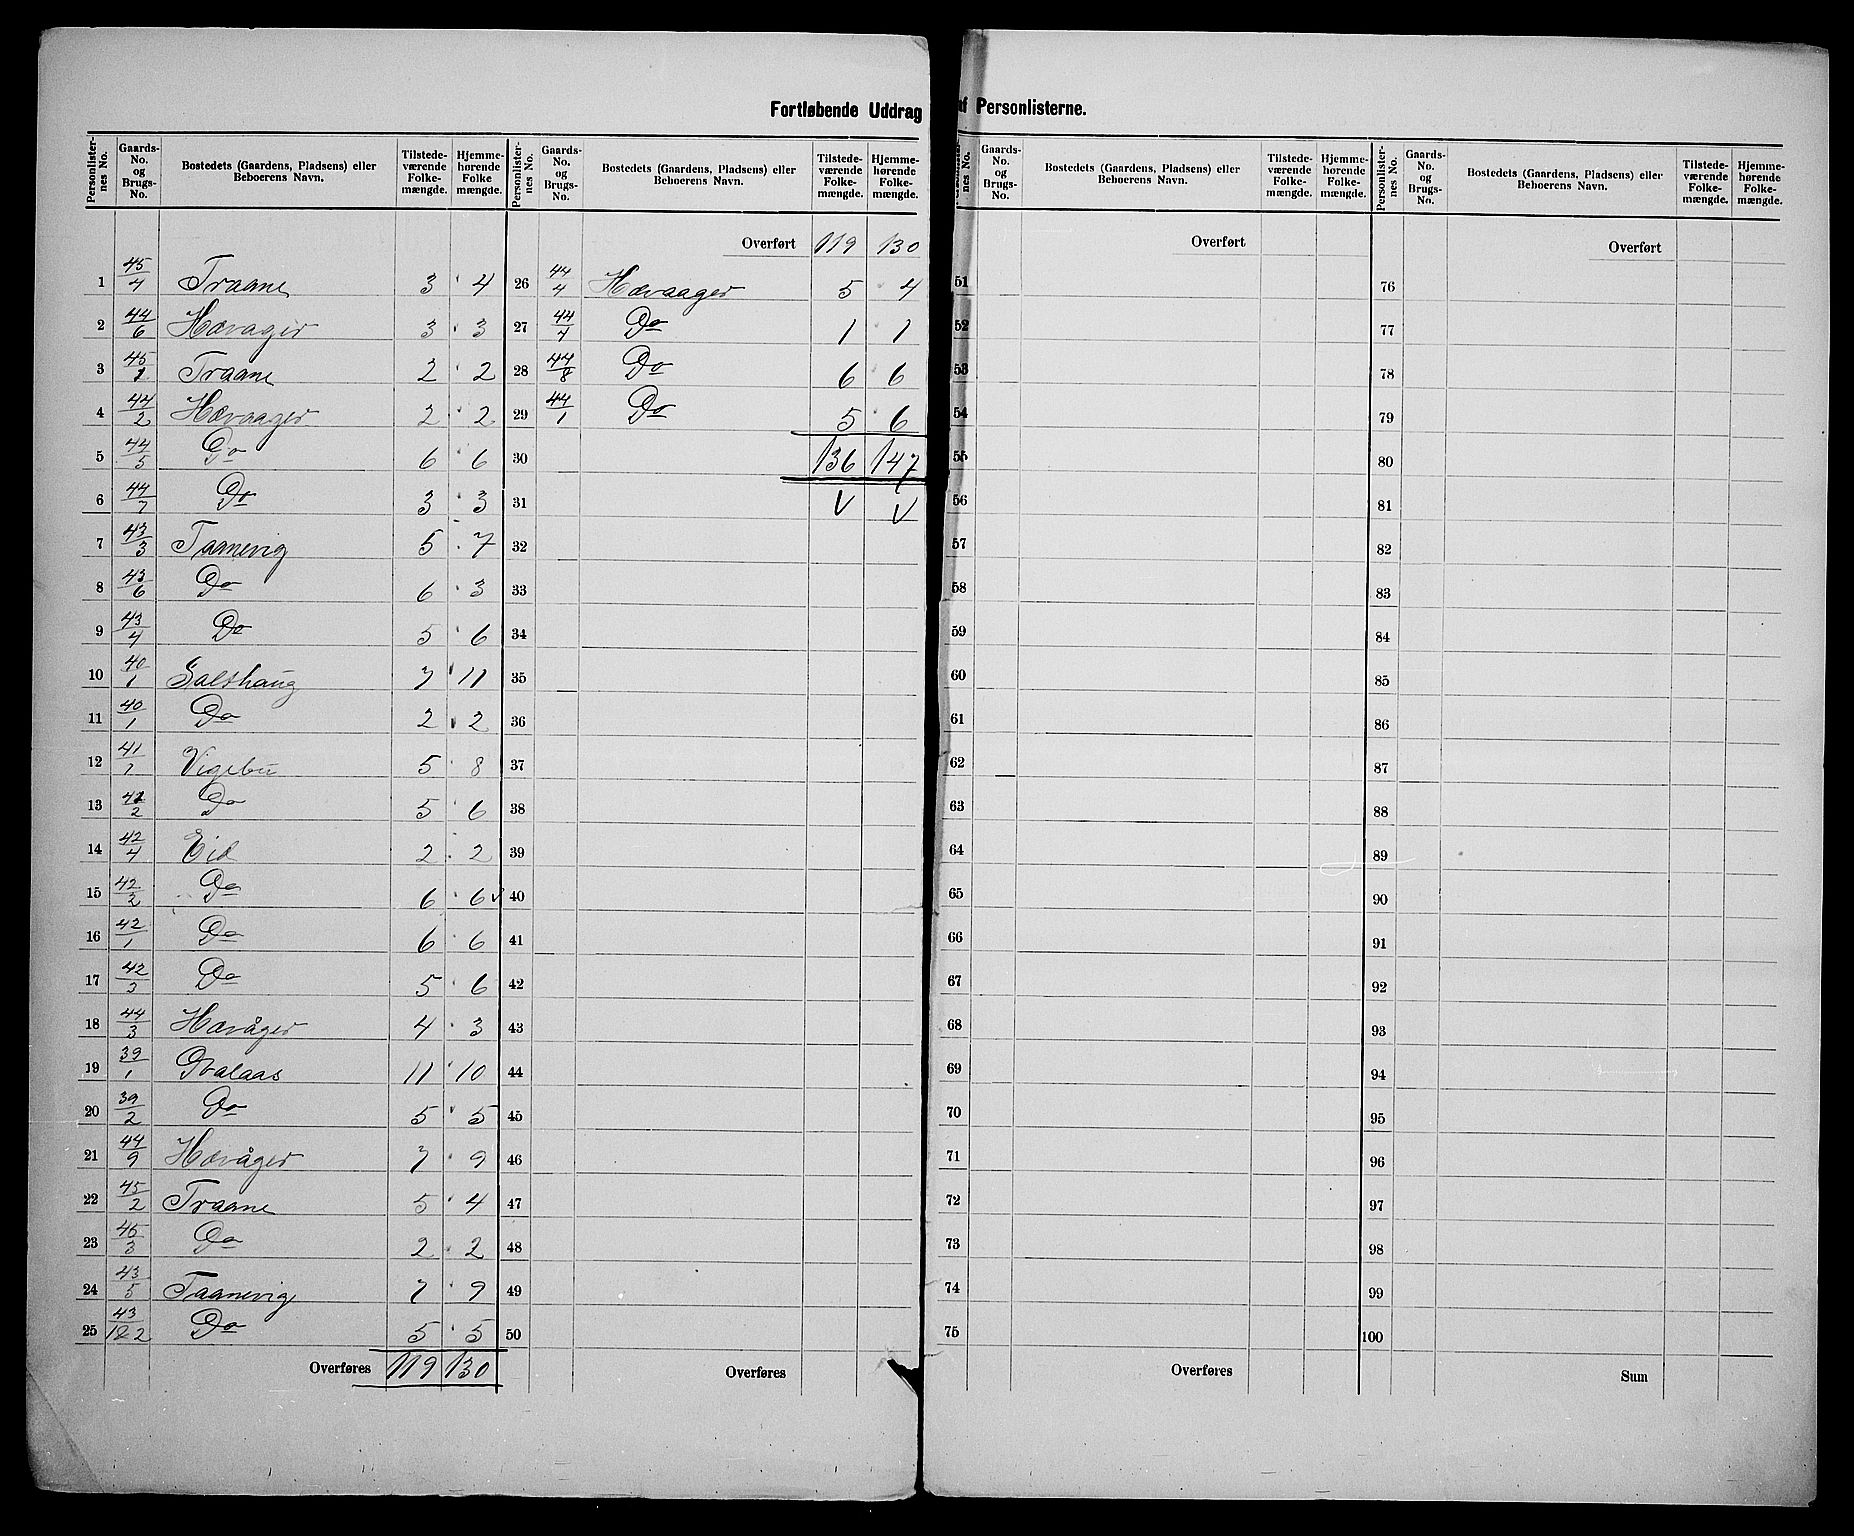 Fortløbende Uddrag af Personlisterne.
Personlisternes No. | Gaards-No. og Brugs-No. | Bostedets (Gaardens, Pladsens) eller Beboerens Navn. | Tilstedeværende Folkemængde. | Hjemmehørende Folkemængde.
1 45/4 Traane 3 4
2 44/6 Hævager 3 3
3 45/1 Traane 2 2
4 44/2 Hævaager 2 2
5 44/5 Do 6 6
6 44/7 Do 3 3
7 43/3 Taanevig 5 7
8 43/6 Do 6 3
9 43/4 Do 5 6
10 40/1 Salthaug 7 11
11 40/1 Do 2 2
12 41/1 Vigebu 5 8
13 41/2 Do 5 6
14 42/4 Eid 2 2
15 42/2 Do 6 6
16 42/1 Do 6 6
17 42/3 Do 5 6
18 44/3 Hævåger 4 3
19 39/1 Svalaas 11 10
20 39/2 Do 5 5
21 44/9 Hævåger 7 9
22 45/2 Traane 5 4
23 45/3 Do 2 2
24 43/5 Taanevig 7 9
25 43/1&2 Do 5 5
Overføres 119 130
Personlisternes No. | Gaards-No. og Brugs-No. | Bostedets (Gaardens, Pladsens) eller Beboerens Navn. | Tilstedeværende Folkemængde. | Hjemmehørende Folkemængde.
Overført 119 130
26 44/4 Hævaager 5 4
27 44/7 Do 1 1
28 44/8 Do 6 6
29 44/1 Do 5 6
30 136 147
31 V V
32
33
34
35
36
37
38
39
40
41
42
43
44
45
46
47
48
49
50
Overføres
Personlisternes No. | Gaards-No. og Brugs-No. | Bostedets (Gaardens, Pladsens) eller Beboerens Navn. | Tilstedeværende Folkemængde. | Hjemmehørende Folkemængde.
Overført
51
52
53
54
55
56
57
58
59
60
61
62
63
64
65
66
67
68
69
70
71
72
73
74
75
Overføres
Personlisternes No. | Gaards-No. og Brugs-No. | Bostedets (Gaardens, Pladsens) eller Beboerens Navn. | Tilstedeværende Folkemængde. | Hjemmehørende Folkemængde.
Overført
76
77
78
79
80
81
82
83
84
85
86
87
88
89
90
91
92
93
94
95
96
97
98
99
100
Sum